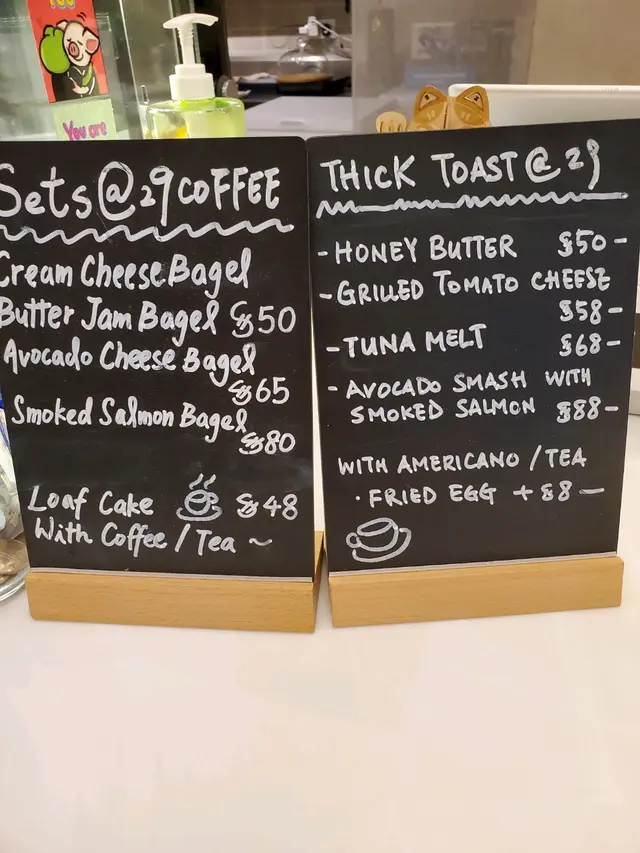 You are
Sets @ 29 COFFEE
Cream Cheese Bagel
Butter Jam Bagel $50
Avocado Cheese Bagel
$65
Smoked Salmon Bagel
$80
Loaf Cake $48
With Coffee / Tea ~
THICK TOAST @ 29
- HONEY BUTTER $50 -
- GRILLED TOMATO CHEESE
$58 -
- TUNA MELT $68 -
- AVOCADO SMASH WITH
SMOKED SALMON $88 -
WITH AMERICANO / TEA
· FRIED EGG + $8 —